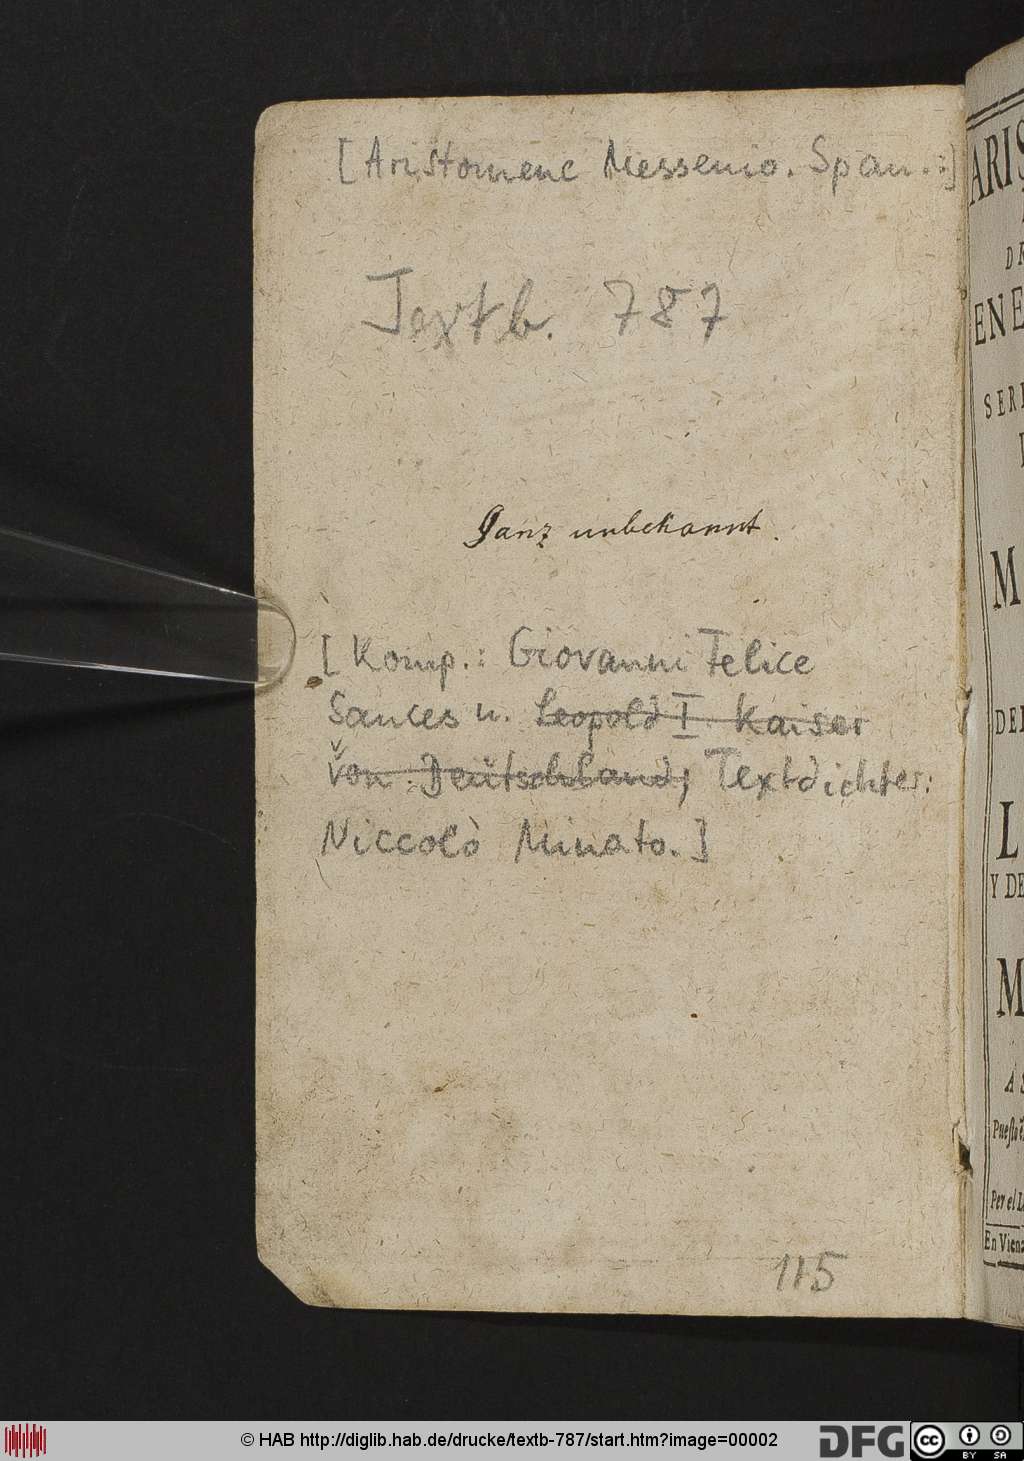 [Aristomene Messenio. Span.:]
Textb. 787
Ganz unbekannt.
[Komp.: Giovanni Felice
Sances u. Leopold I. Kaiser
von Deutschland; Textdichter:
Niccolò Minato.]
115
ARIS
DR
EN E
SERE
M
DE
L
Y DE
M
A S
Puesto
Por el L
En Viena
© HAB http://diglib.hab.de/drucke/textb-787/start.htm?image=00002
DFG
cc
BY SA